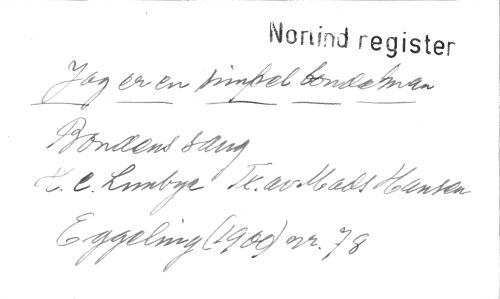 Nordind register
Jag er en simpel bondemand
Bondens sang
H. C. Lumbye Tk. av Mads Hansen
Eggeling (1900) nr. 78